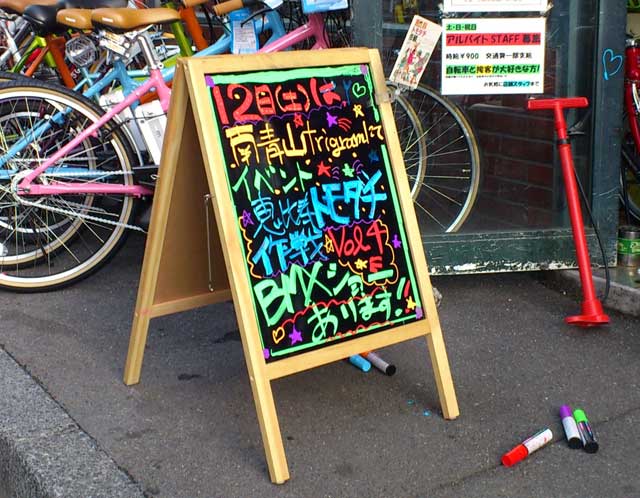 12日(土)に
南青山Trigramにて
イベント
恵比寿トモダチ
作戦Vol4
BMXショー
あります!!
土・日・祝日
アルバイトSTAFF募集
時給￥900 交通費一部支給
自転車と接客が大好きな方!
お気軽に店舗スタッフまで